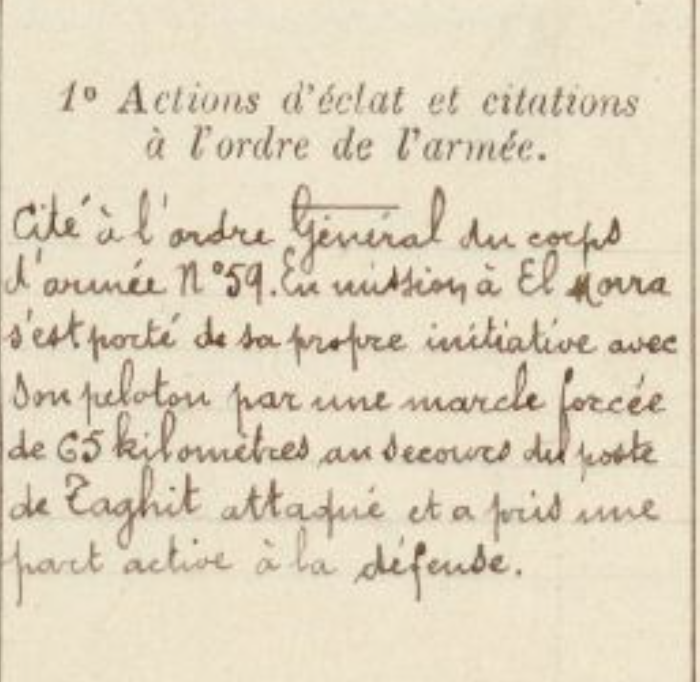 1º Actions d'éclat et citations
à l'ordre de l'armée.
Cité à l'ordre Général du corps
d'armée Nº59. En mission à El Morra
s'est porté de sa propre initiative avec
son peloton par une marche forcée
de 65 kilomètres au secours du poste
de Taghit attaqué et a pris une
part active à la défense.